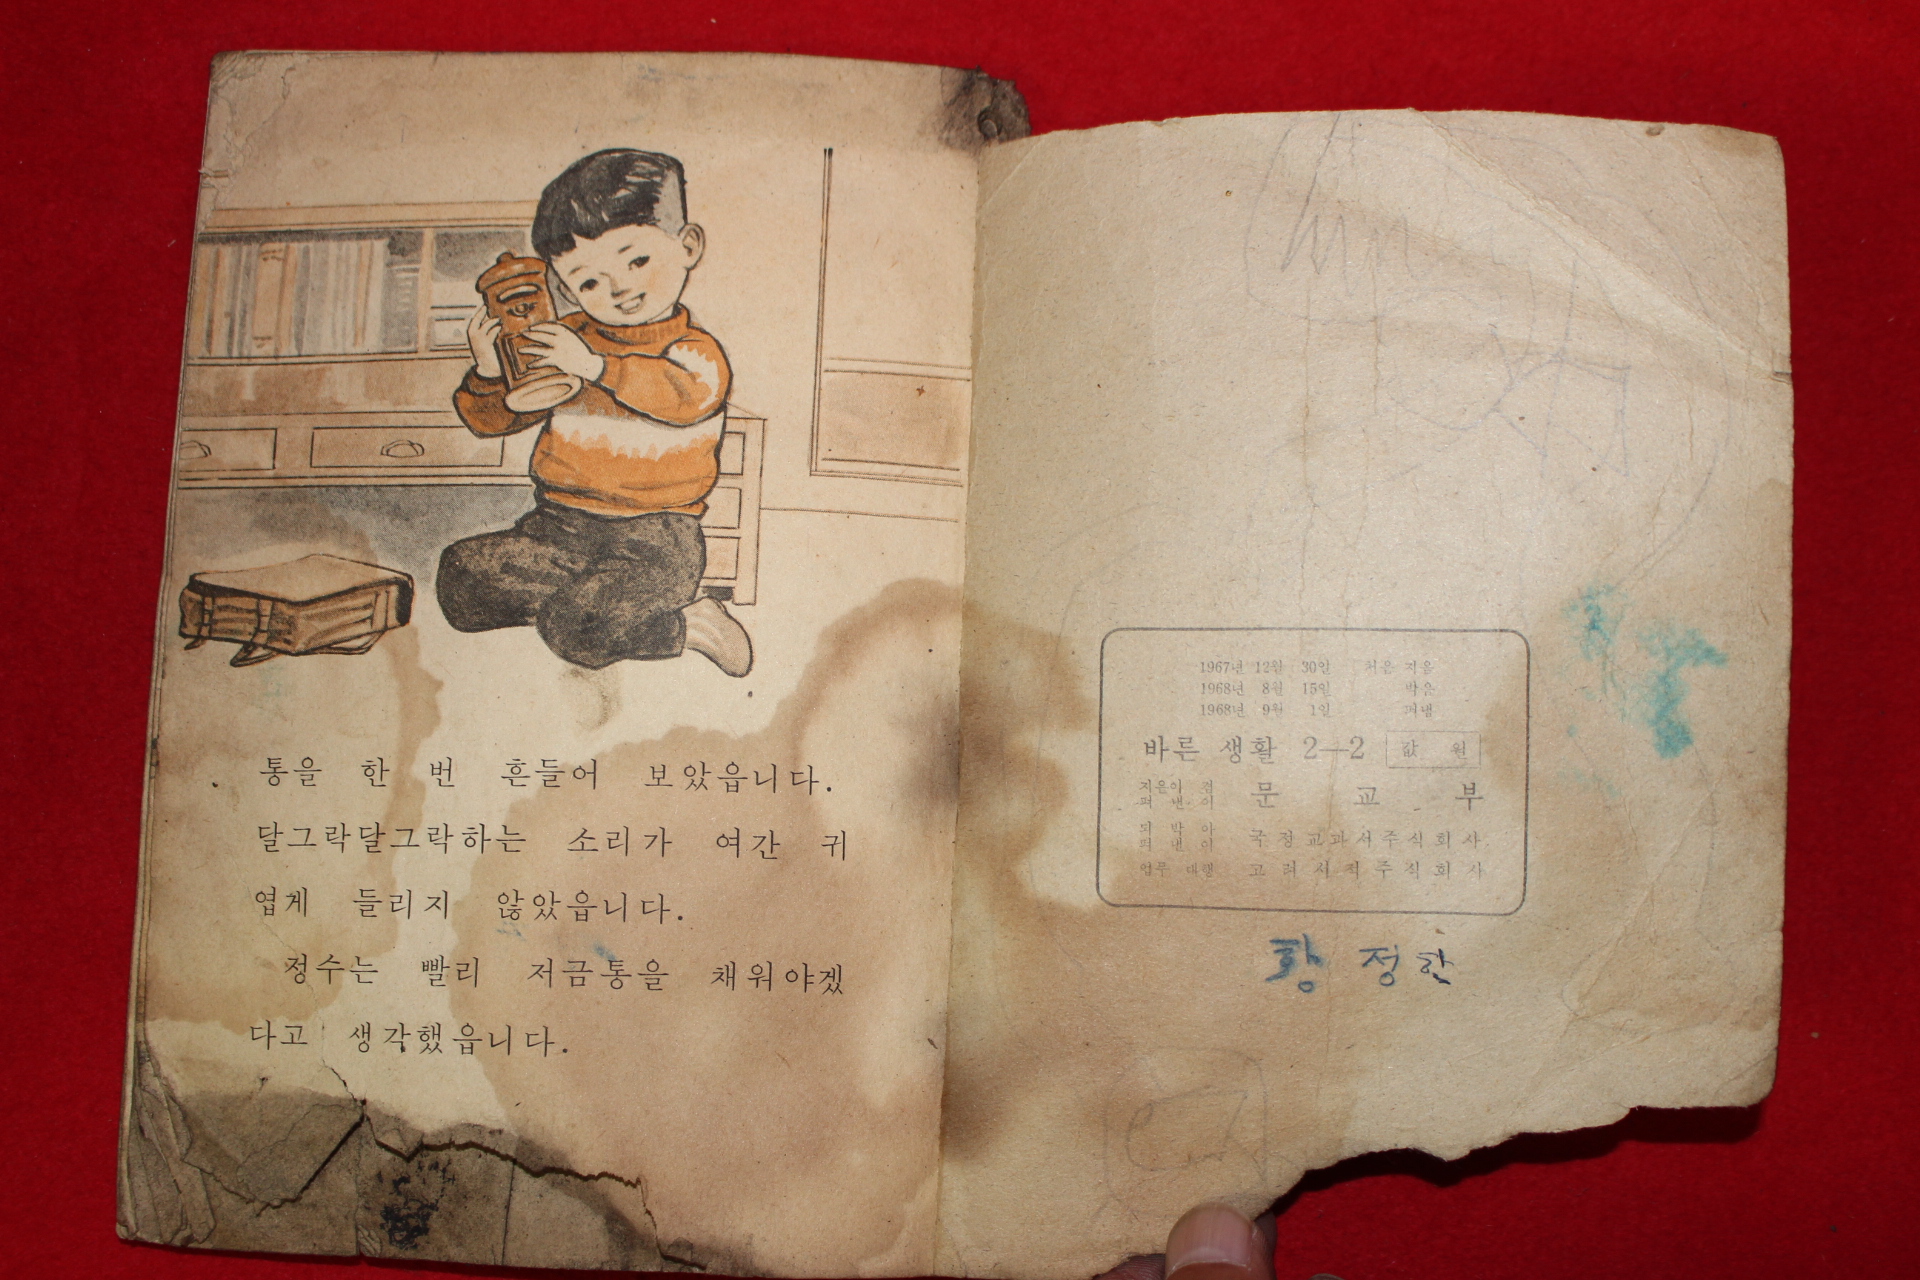 통을 한 번 흔들어 보았읍니다.
달그락달그락하는 소리가 여간 귀
엽게 들리지 않았읍니다.
정수는 빨리 저금통을 채워야겠
다고 생각했읍니다.
1967년 12월 30일 처음 지음
1968년 8월 15일 박음
1968년 9월 1일 펴냄
바른 생활 2—2 값 원
지은이 겸
펴 낸 이 문 교 부
되 박 아
펴 낸 이 국정교과서주식회사
업무 대행 고려서적주식회사
황 정한